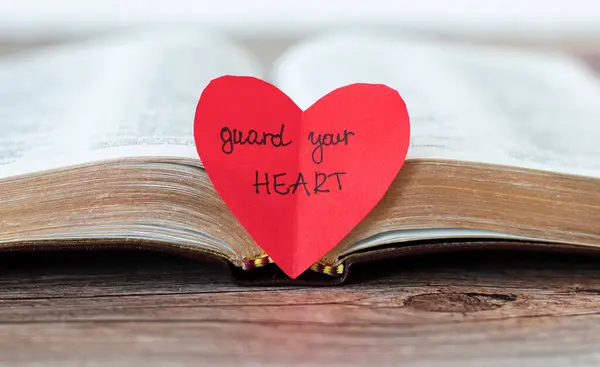 guard your
HEART